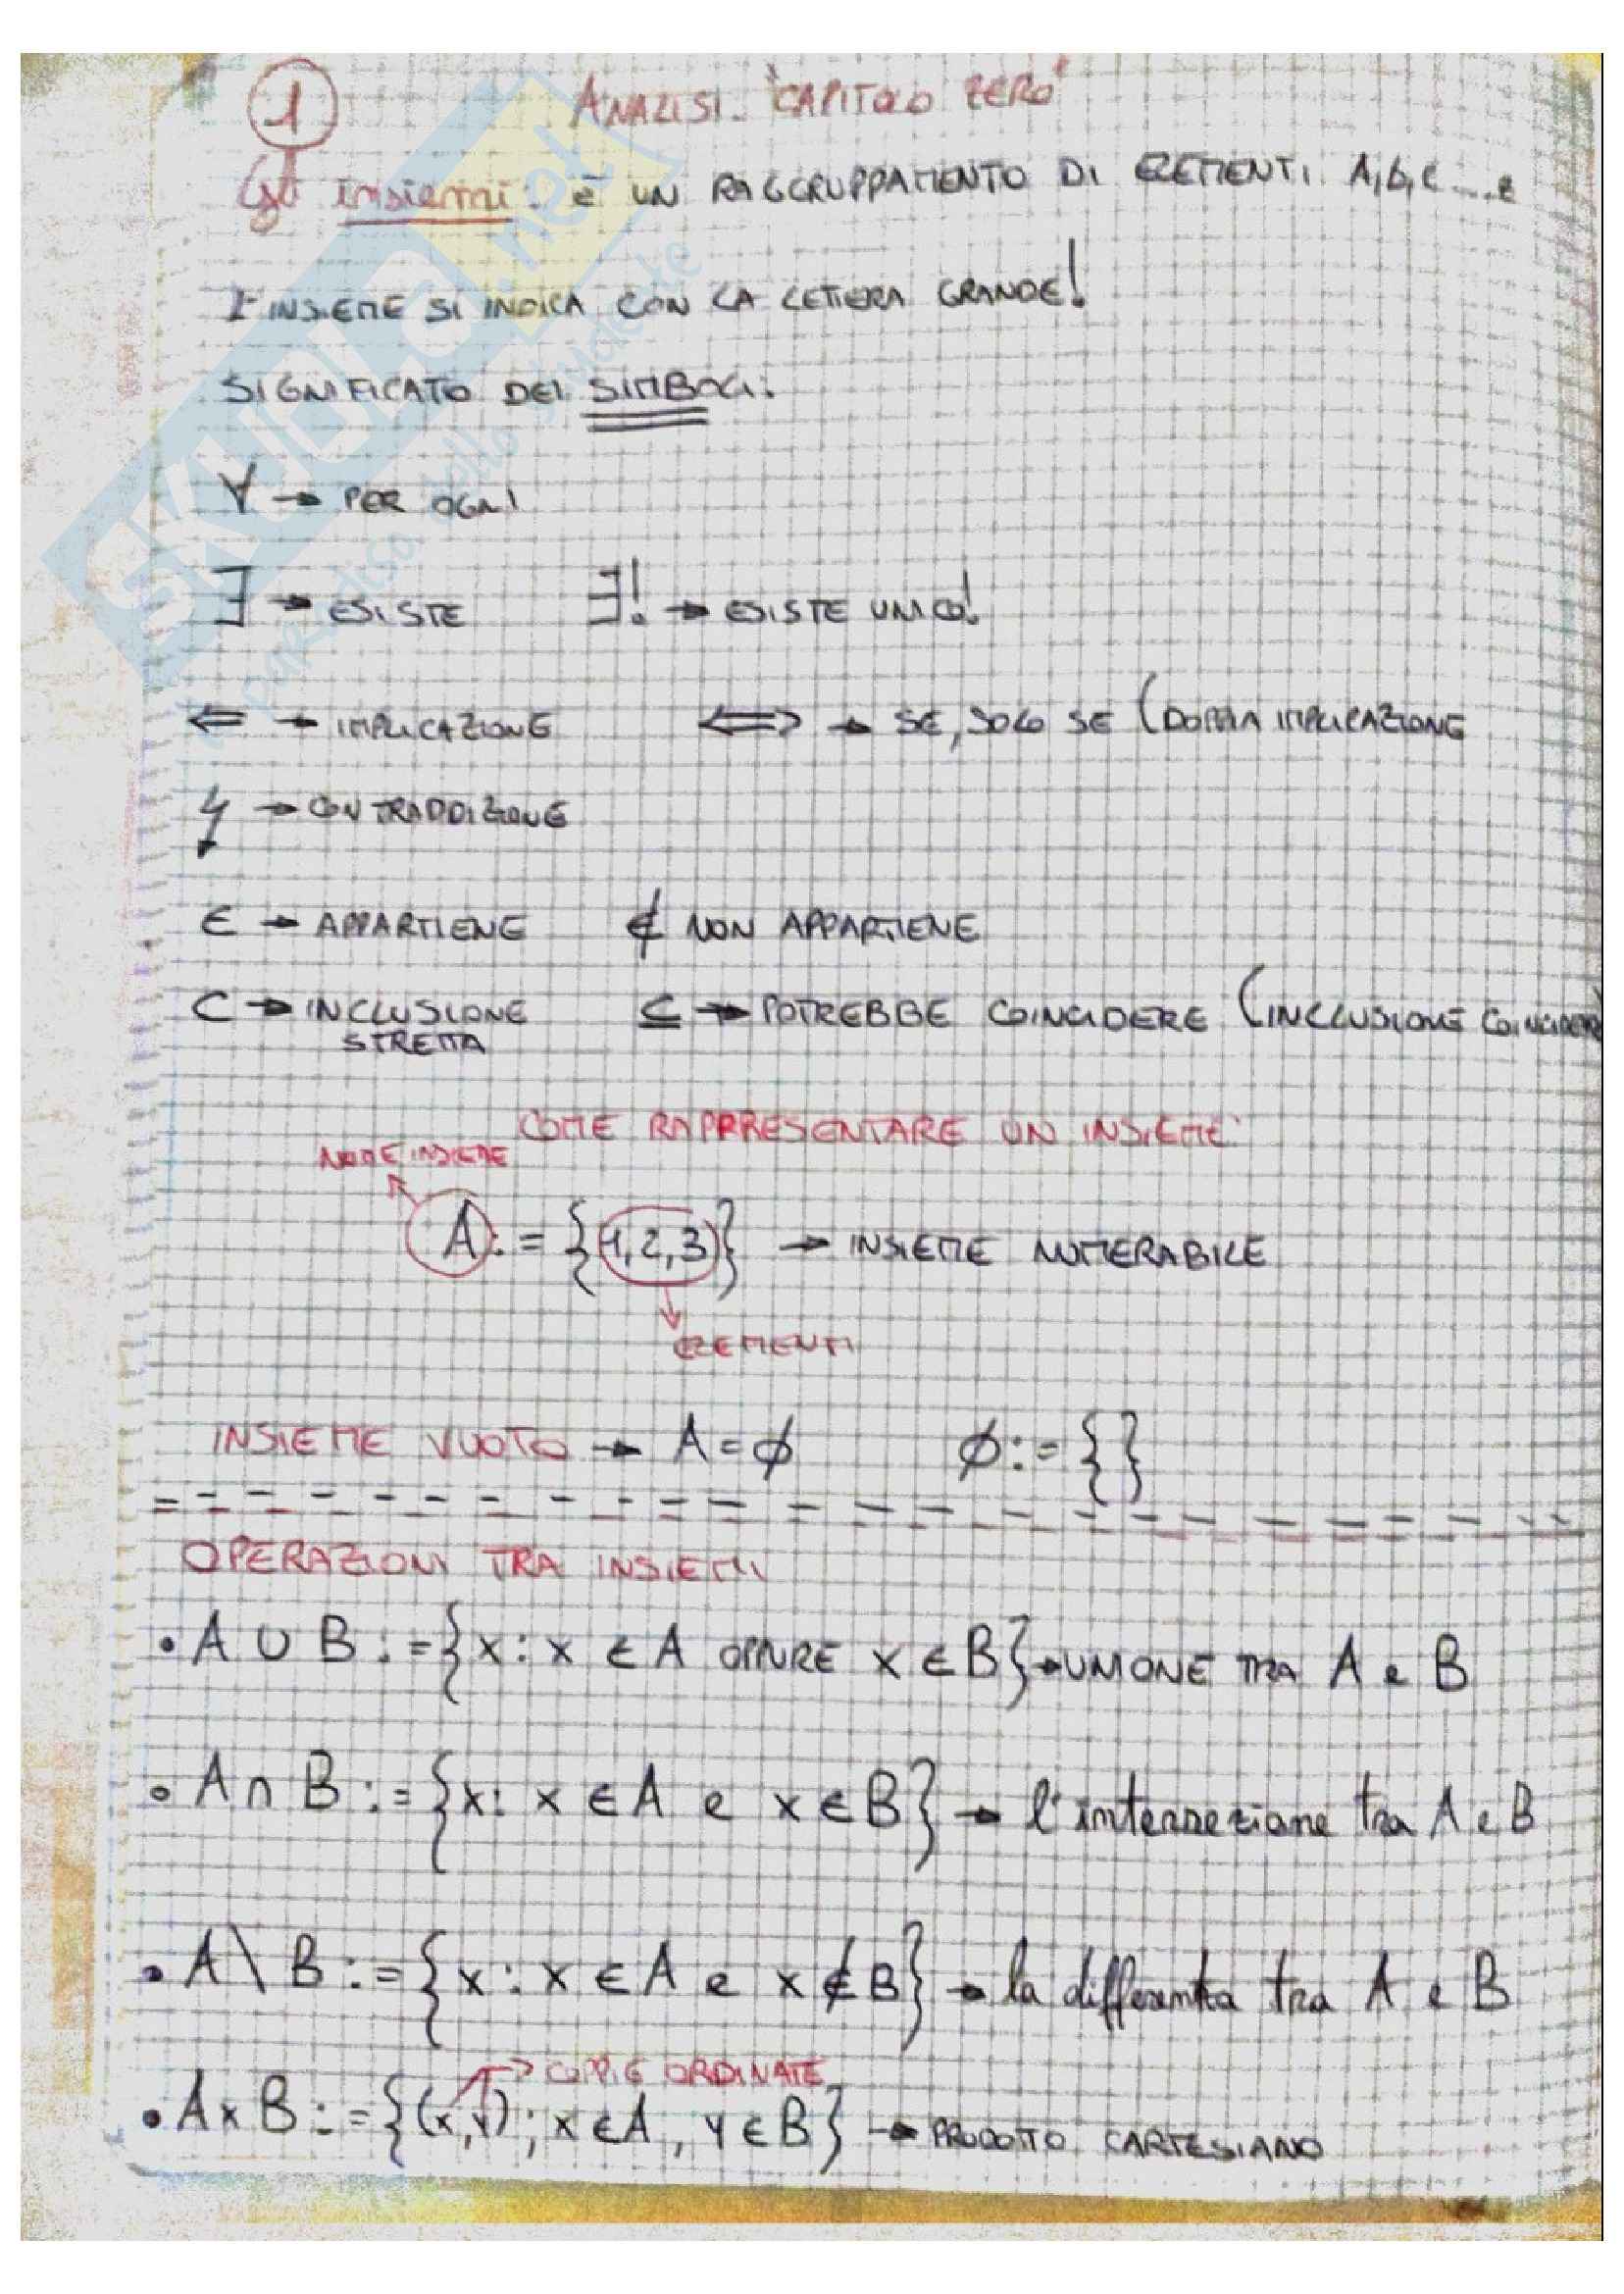 1
ANALISI "CAPITOLO ZERO"
Gli insiemi: è UN RAGGRUPPAMENTO DI ELEMENTI A,b,c...e
L'INSIEME SI INDICA CON LA LETTERA GRANDE!
SIGNIFICATO DEI SIMBOLI:
∀ → PER OGNI
∃ → ESISTE ∃! → ESISTE UNICO!
⇐ → IMPLICAZIONE ⇔ → SE, SOLO SE (DOPPIA IMPLICAZIONE
↯ → CONTRADDIZIONE
∈ → APPARTIENE ∉ NON APPARTIENE
⊂ → INCLUSIONE STRETTA ⊆ → POTREBBE COINCIDERE (INCLUSIONE
COME RAPPRESENTARE UN INSIEME:
NOME INSIEME
A := {1,2,3} → INSIEME NUMERABILE
ELEMENTI
INSIEME VUOTO → A = ∅ ∅ := { }
OPERAZIONI TRA INSIEMI
• A ∪ B := {x : x ∈ A OPPURE x ∈ B} → UNIONE TRA A e B
• A ∩ B := {x : x ∈ A e x ∈ B} → l'intersezione tra A e B
• A \ B := {x : x ∈ A e x ∉ B} → la differenza tra A e B
COPPIE ORDINATE
• A x B := {(x,y) ; x ∈ A, y ∈ B} → PRODOTTO CARTESIANO
SKUOLA.net